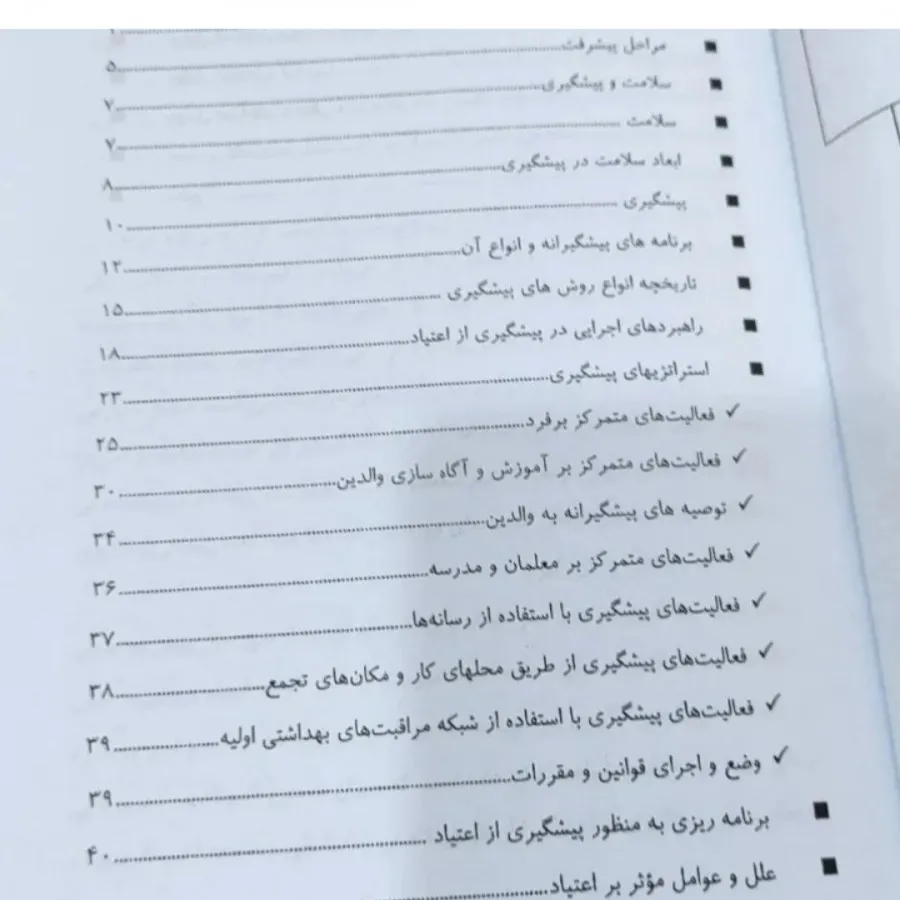 مراحل پیشرفت ........ ۵
سلامت و پیشگیری ........ ۷
سلامت ........ ۷
ابعاد سلامت در پیشگیری ........ ۸
پیشگیری ........ ۱۰
برنامه های پیشگیرانه و انواع آن ........ ۱۲
تاریخچه انواع روش های پیشگیری ........ ۱۵
راهبردهای اجرایی در پیشگیری از اعتیاد ........ ۱۸
استراتژیهای پیشگیری ........ ۲۳
✓ فعالیت‌های متمرکز برفرد ........ ۲۵
✓ فعالیت‌های متمرکز بر آموزش و آگاه سازی والدین ........ ۳۰
✓ توصیه های پیشگیرانه به والدین ........ ۳۴
✓ فعالیت‌های متمرکز بر معلمان و مدرسه ........ ۳۶
✓ فعالیت‌های پیشگیری با استفاده از رسانه‌ها ........ ۳۷
✓ فعالیت‌های پیشگیری از طریق محلهای کار و مکان‌های تجمع ........ ۳۸
✓ فعالیت‌های پیشگیری با استفاده از شبکه مراقبت‌های بهداشتی اولیه ........ ۳۹
✓ وضع و اجرای قوانین و مقررات ........ ۳۹
برنامه ریزی به منظور پیشگیری از اعتیاد ........ ۴۰
علل و عوامل مؤثر بر اعتیاد ........